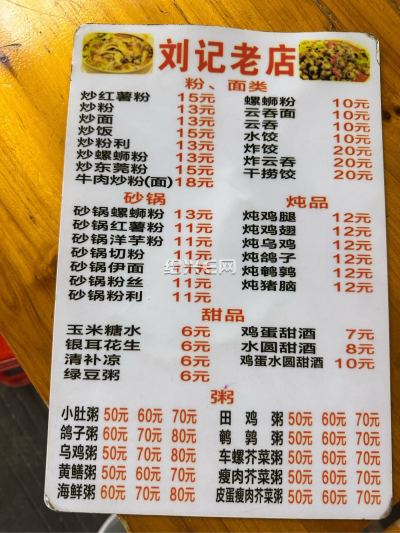 刘记老店
粉、面类
炒红薯粉 15元
炒粉 13元
炒面 13元
炒饭 13元
炒粉利 13元
炒螺蛳粉 13元
炒东莞粉 15元
牛肉炒粉(面) 18元
螺蛳粉 10元
云吞面 10元
云吞 10元
水饺 10元
炸饺 20元
炸云吞 20元
干捞饺 20元
砂锅
砂锅螺蛳粉 13元
砂锅红薯粉 11元
砂锅洋芋粉 11元
砂锅切粉 11元
砂锅伊面
砂锅粉丝 11元
砂锅粉利 11元
炖品
炖鸡腿 12元
炖鸡翅 12元
炖乌鸡 12元
炖鸽子 12元
炖鹌鹑 12元
炖猪脑 12元
甜品
玉米糖水 6元
银耳花生 6元
清补凉 6元
绿豆粥 6元
鸡蛋甜酒 7元
水圆甜酒 8元
鸡蛋水圆甜酒 10元
粥
小肚粥 50元 60元 70元
鸽子粥 60元 70元 80元
乌鸡粥 50元 70元 80元
黄鳝粥 50元 60元 70元
海鲜粥 60元 70元 80元
田鸡粥 50元 60元 70元
鹌鹑粥 50元 60元 70元
车螺芥菜粥 50元 60元 70元
瘦肉芥菜粥 50元 60元 70元
皮蛋瘦肉芥菜粥 50元 60元 70元